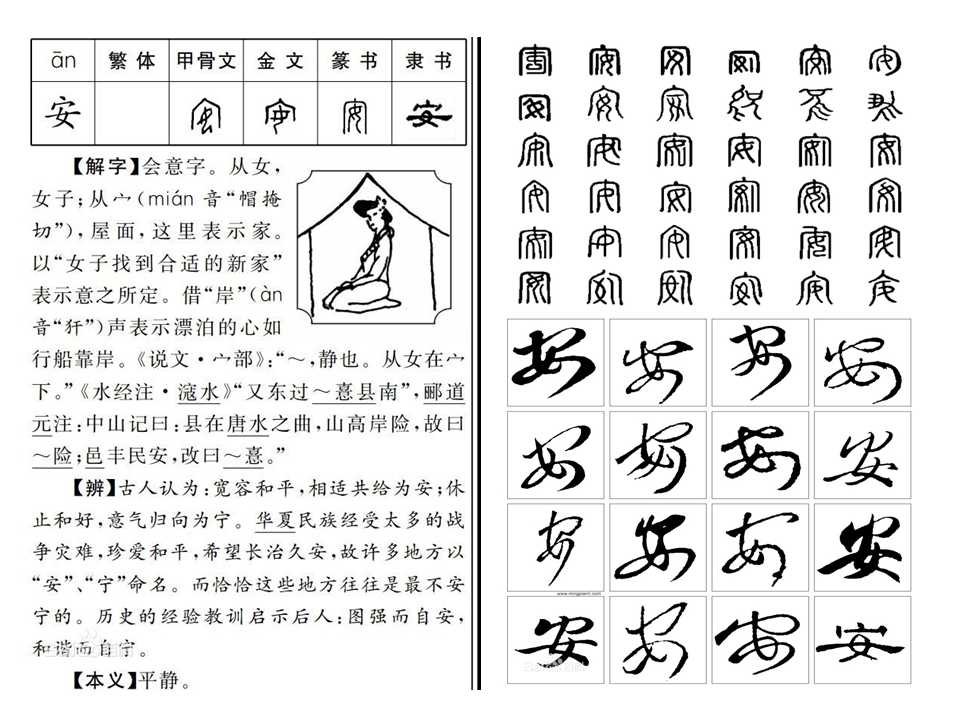 ān 繁体 甲骨文 金文 篆书 隶书
安 安 安 安 安
【解字】会意字。从女，
女子；从宀（mián 音“帽掩
切”），屋面，这里表示家。
以“女子找到合适的新家”
表示意之所定。借“岸”（àn
音“犴”）声表示漂泊的心如
行船靠岸。《说文·宀部》：“～，静也。从女在宀
下。”《水经注·滱水》“又东过～憙县南”，郦道
元注：中山记曰：县在唐水之曲，山高岸险，故曰
～险；邑丰民安，改曰～憙。”
【辨】古人认为：宽容和平，相适共给为安；休
止和好，意气归向为宁。华夏民族经受太多的战
争灾难，珍爱和平，希望长治久安，故许多地方以
“安”、“宁”命名。而恰恰这些地方往往是最不安
宁的。历史的经验教训启示后人：图强而自安，
和谐而自宁。
【本义】平静。
安 安 安 安 安 安
安 安 安 安 安 安
安 安 安 安 安 安
安 安 安 安 安 安
安 安 安 安 安 安
安 安 安 安 安 安
安 安 安 安
安 安 安 安
安 安 安 安
安 安 安 安